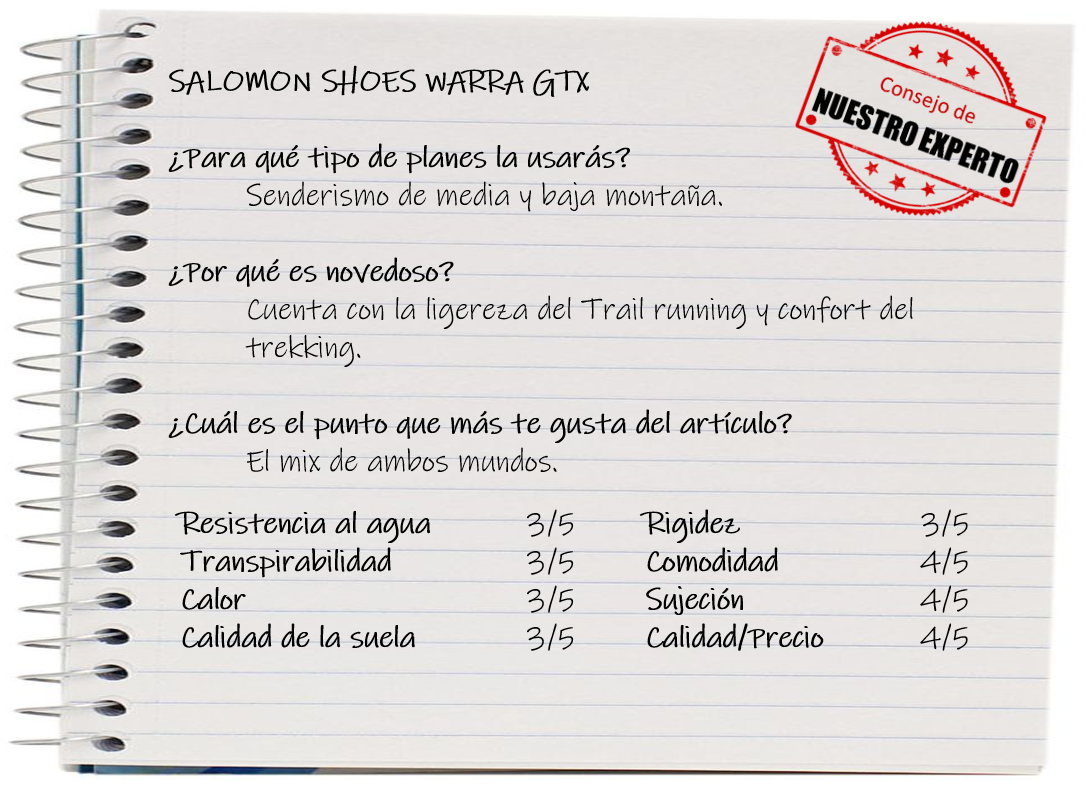 SALOMON SHOES WARRA GTX
Consejo de
NUESTRO EXPERTO
¿Para qué tipo de planes la usarás?
Senderismo de media y baja montaña.
¿Por qué es novedoso?
Cuenta con la ligereza del Trail running y confort del
trekking.
¿Cuál es el punto que más te gusta del artículo?
El mix de ambos mundos.
Resistencia al agua 3/5 Rigidez 3/5
Transpirabilidad 3/5 Comodidad 4/5
Calor 3/5 Sujeción 4/5
Calidad de la suela 3/5 Calidad/Precio 4/5